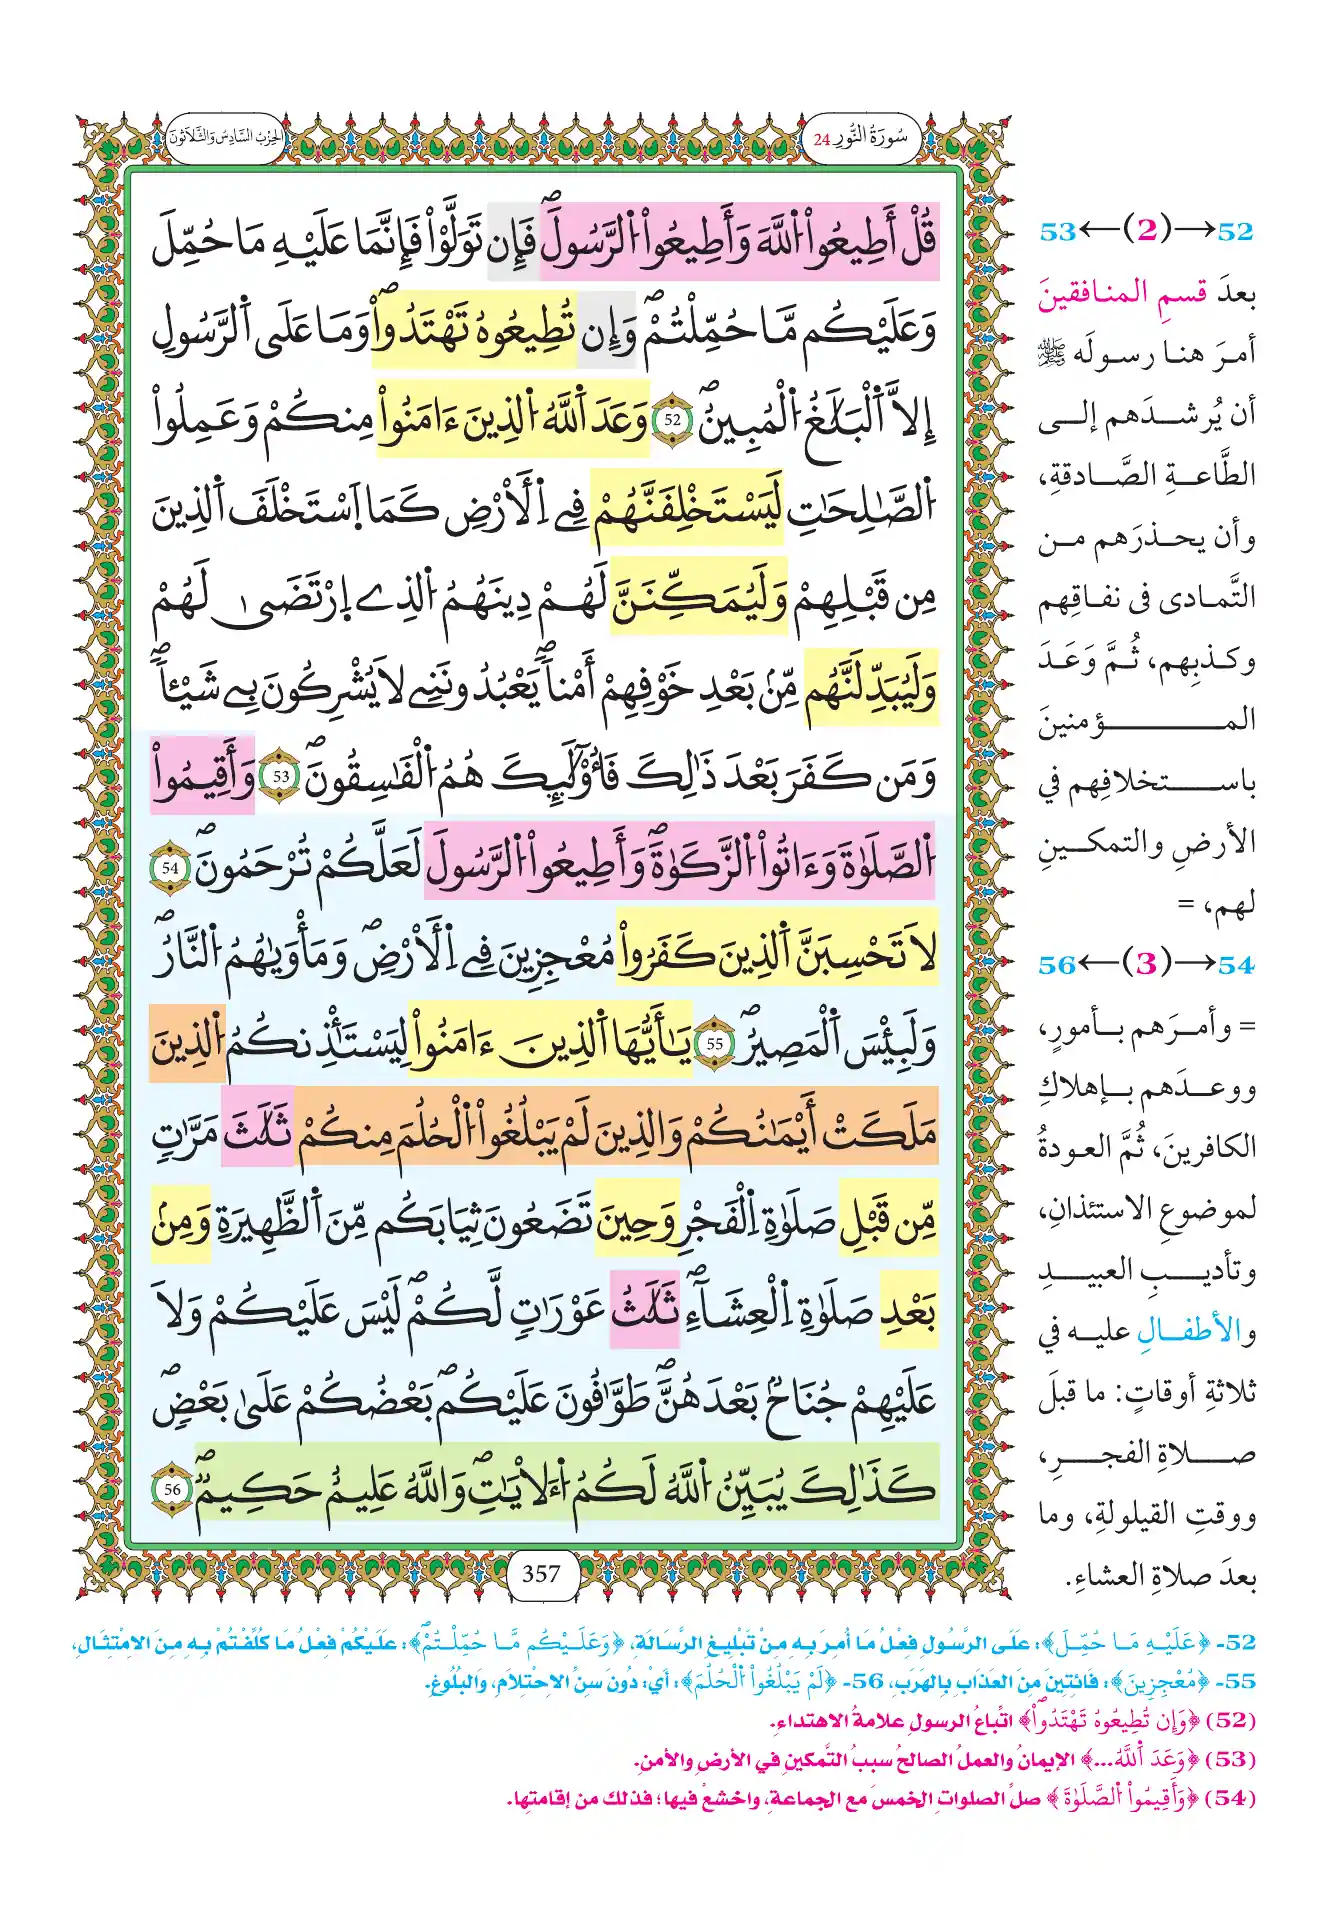 سُورَةُ النُّورِ 24
الحِزْبُ السَّادِسُ وَالثَّلَاثُونَ
قُلْ أَطِيعُواْ اُللَّهَ وَأَطِيعُواْ اُلرَّسُولَۖ فَإِن تَوَلَّوْاْ فَإِنَّمَا عَلَيْهِ مَا حُمِّلَ
وَعَلَيْكُم مَّا حُمِّلْتُمْۖ وَإِن تُطِيعُوهُ تَهْتَدُواْۖ وَمَا عَلَى اَلرَّسُولِ
إِلاَّ اَلْبَلَٰغُ اُلْمُبِينُۖ 52 وَعَدَ اَللَّهُ اُلذِينَ ءَامَنُواْ مِنكُمْ وَعَمِلُواْ
اُلصَّٰلِحَٰتِ لَيَسْتَخْلِفَنَّهُمْ فِے اِلَارْضِ كَمَا اَسْتَخْلَفَ اَلذِينَ
مِن قَبْلِهِمْ وَلَيُمَكِّنَنَّ لَهُمْ دِينَهُمُ اُلذِے اِرْتَضَىٰ لَهُمْ
وَلَيُبَدِّلَنَّهُم مِّنۢ بَعْدِ خَوْفِهِمْ أَمْناٗۖ يَعْبُدُونَنِے لَا يُشْرِكُونَ بِے شَيْـٔاٗۖ
وَمَن كَفَرَ بَعْدَ ذَٰلِكَ فَأُوْلَٰٓئِكَ هُمُ اُلْفَٰسِقُونَۖ 53 وَأَقِيمُواْ
اُلصَّلَوٰةَ وَءَاتُواْ اُلزَّكَوٰةَۖ وَأَطِيعُواْ اُلرَّسُولَ لَعَلَّكُمْ تُرْحَمُونَۖ 54
لَا تَحْسِبَنَّ اَلذِينَ كَفَرُواْ مُعْجِزِينَ فِے اِلَارْضِۖ وَمَأْوَيٰهُمُ اُلنَّارُۖ
وَلَبِئْسَ اَلْمَصِيرُۖ 55 يَٰأَيُّهَا اَلذِينَ ءَامَنُواْ لِيَسْتَٰٔذِنكُمُ اُلذِينَ
مَلَكَتْ أَيْمَٰنُكُمْ وَالذِينَ لَمْ يَبْلُغُواْ اُلْحُلُمَ مِنكُمْ ثَلَٰثَ مَرَّٰتٖ
مِّن قَبْلِ صَلَوٰةِ اِلْفَجْرِ وَحِينَ تَضَعُونَ ثِيَابَكُم مِّنَ اَلظَّهِيرَةِ وَمِنۢ
بَعْدِ صَلَوٰةِ اِلْعِشَآءِۖ ثَلَٰثُ عَوْرَٰتٖ لَّكُمْۖ لَيْسَ عَلَيْكُمْ وَلَا
عَلَيْهِمْ جُنَاحُۢ بَعْدَهُنَّۖ طَوَّٰفُونَ عَلَيْكُمۖ بَعْضُكُمْ عَلَىٰ بَعْضٖۖ
كَذَٰلِكَ يُبَيِّنُ اُللَّهُ لَكُمُ اُلَايَٰتِۖ وَاللَّهُ عَلِيمٌ حَكِيمٞۖ 56
357
52→(2)←53
بعدَ قسمِ المنافقينَ
أمرَ هنا رسولَه ﷺ
أن يُرشدَهم إلى
الطَّاعةِ الصَّادقةِ،
وأن يحذرَهم من
التَّمادى فى نفاقِهم
وكذبِهم، ثُمَّ وَعَدَ
المؤمنينَ
باستخلافِهم في
الأرضِ والتمكينِ
لهم، =
54→(3)←56
= وأمرَهم بأمورٍ،
ووعدَهم بإهلاكِ
الكافرينَ، ثُمَّ العودةُ
لموضوعِ الاستئذانِ،
وتأديبِ العبيدِ
والأطفالِ عليه في
ثلاثةِ أوقاتٍ: ما قبلَ
صلاةِ الفجرِ،
ووقتِ القيلولةِ، وما
بعدَ صلاةِ العشاءِ.
52- ﴿عَلَيْهِ مَا حُمِّلَ﴾: عَلَى الرَّسُولِ فِعْلُ مَا أُمِرَ بِهِ مِنْ تَبْلِيغِ الرِّسَالَةِ، ﴿وَعَلَيْكُم مَّا حُمِّلْتُمْۖ﴾: عَلَيْكُمْ فِعْلُ مَا كُلِّفْتُمْ بِهِ مِنَ الامْتِثَالِ،
55- ﴿مُعْجِزِينَ﴾: فَائِتِينَ مِنَ العَذَابِ بِالهَرَبِ، 56- ﴿لَمْ يَبْلُغُواْ اُلْحُلُمَ﴾: أَيْ: دُونَ سِنِّ الاحْتِلَامِ، وَالبُلُوغِ.
(52) ﴿وَإِن تُطِيعُوهُ تَهْتَدُواْۖ﴾ اتِّباعُ الرسولِ علامةُ الاهتداءِ.
(53) ﴿وَعَدَ اَللَّهُ...﴾ الإيمانُ والعملُ الصالحُ سببُ التَّمكينِ في الأرضِ والأمنِ.
(54) ﴿وَأَقِيمُواْ اُلصَّلَوٰةَ﴾ صلِّ الصلواتِ الخمسَ مع الجماعةِ، واخشعْ فيها؛ فذلك من إقامتِها.